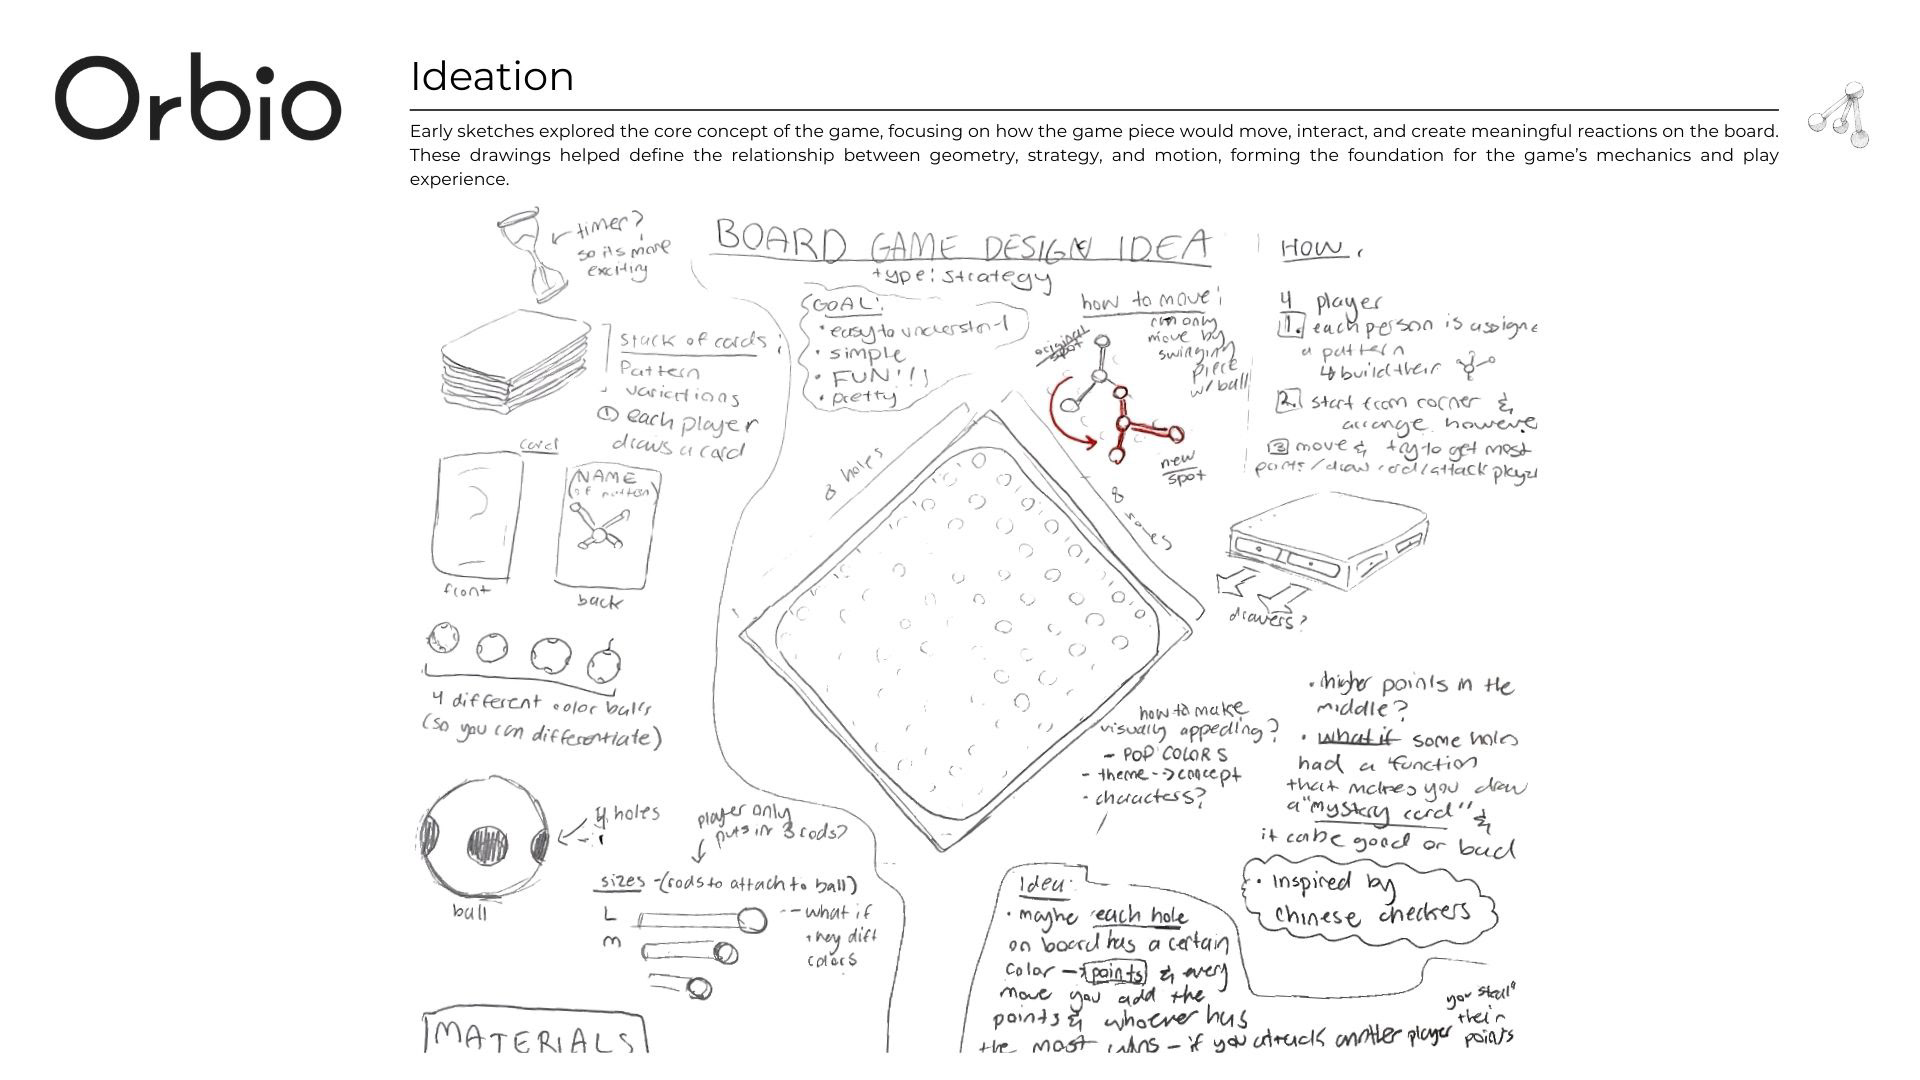 Orbio
Ideation
Early sketches explored the core concept of the game, focusing on how the game piece would move, interact, and create meaningful reactions on the board.
These drawings helped define the relationship between geometry, strategy, and motion, forming the foundation for the game's mechanics and play
experience.
timer?
so its more
exciting
BOARD GAME DESIGN IDEA
type: strategy
GOAL:
• easy to
• simple
• FUN!!!
• pretty
how to move:
can only
move by
swinging
piece
w/ ball
original
spot
new
spot
HOW
4 player
1. each person is assigne
a pattern
↳ build their
2. start from corner &
arrange howeve
3 move & try to get most
points/draw card/attack player
stack of cards:
Pattern
variations
① each player
draws a card
card
front
NAME
(of pattern)
back
8 holes
8 holes
drawers?
4 different color balls
(so you can differentiate)
4 holes
ball
player only
puts in 3 rods?
sizes - (rods to attach to ball)
L
M
-- what if
they diff
colors
MATERIALS
how to make
visually appealing?
- POP COLORS
- theme --> concept
- characters?
• higher points in the
middle?
• what if some holes
had a function
that makes you draw
a "mystery card" &
it can be good or bad
• Inspired by
chinese checkers
Idea:
• maybe each hole
on board has a certain
color → points & every
move you add the
points & whoever has
the most wins - if you attack another player
you steal
their
points